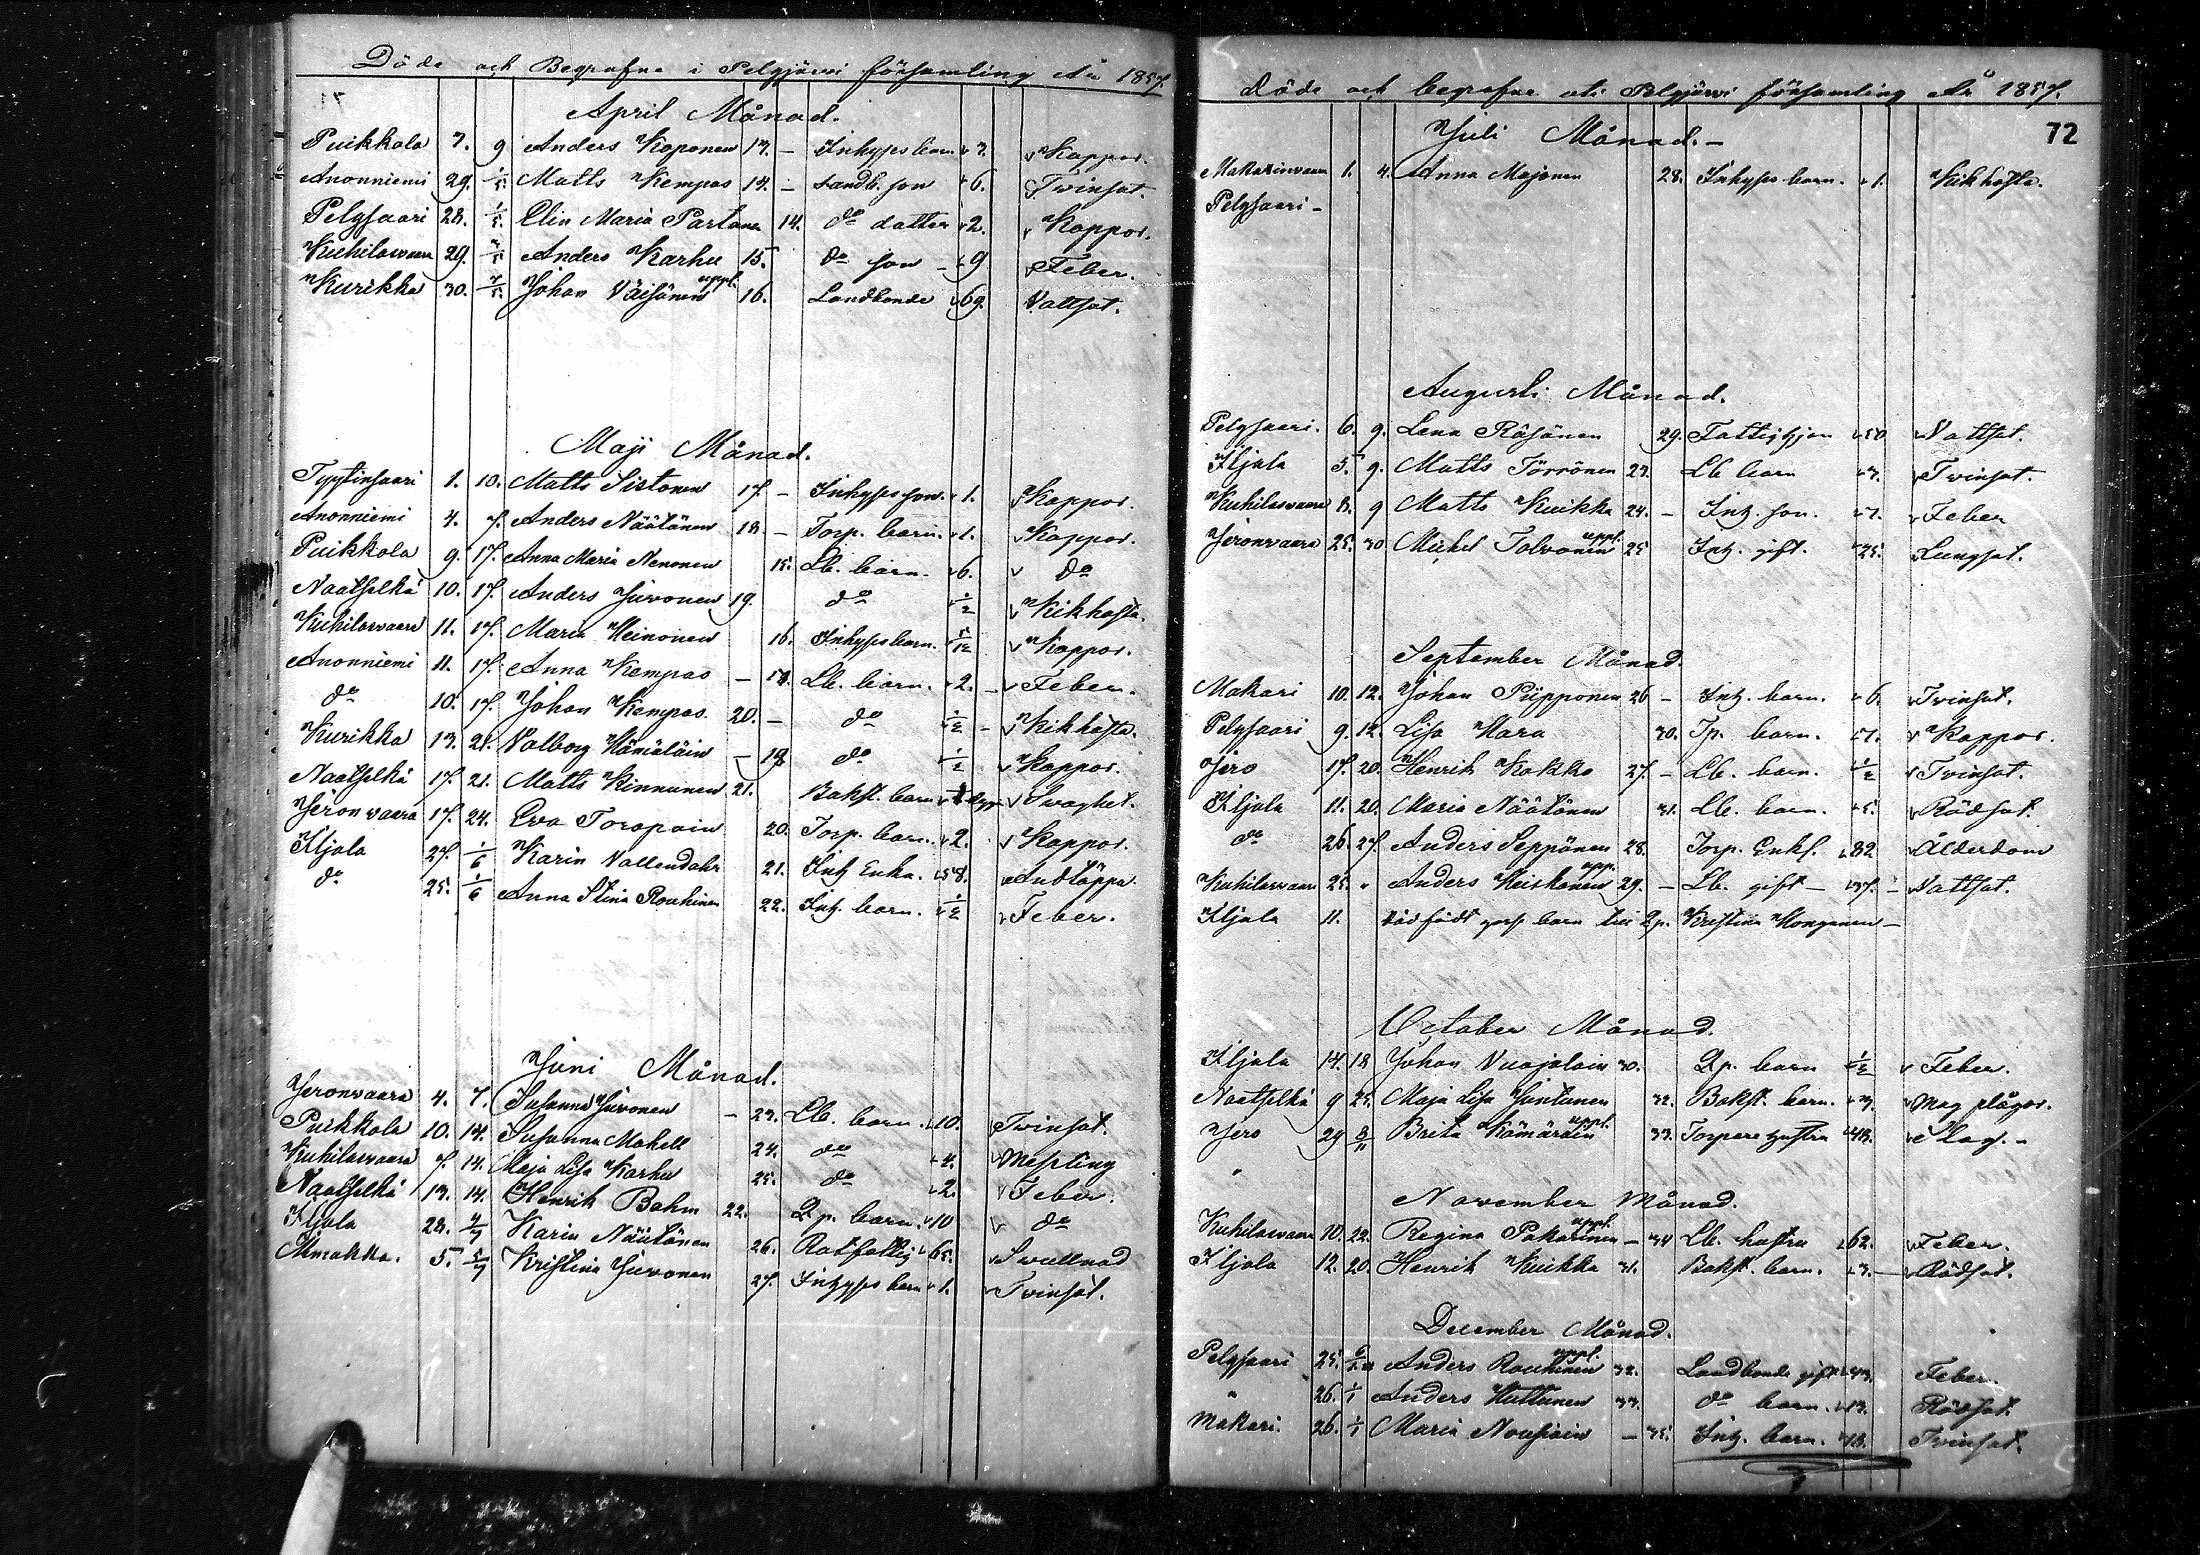 Döde och Begrafne i Pelgjärvi församling År 1857.
April Månad.
Puikkola 7. 9 Anders Koponen 13. – Inhyses barn 3. Koppor.
Anonniemi 29. 1/5 Matts Kempas 14. – Landb. son 6. Tvinsot.
Pelgsaari 28. 1/5 Elin Maria Partane 14. do dotter 2. Koppor.
Kuhilasvaara 29. 3/5 Anders Karhu 15. do son – 9 Feber.
Kurikka 30. 7/5 Johan Väisänen uppl. 16. Landbonde 69. Vattsot.
Maji Månad.
Tyytinsaari 1. 10. Matts Sistonen 17. – Inhyses son 1. Koppor.
Anonniemi 4. 7. Anders Näätänen 18. – Torp. barn. 1. Koppor.
Puikkola 9. 17. Anna Maria Nenonen 15. Lb. barn. 6. do
Naatselkä 10. 17. Anders Juvonen 19. do 1/2 Kikhosta.
Kuhilasvaara 11. 17. Maria Heinonen 16. Inhyses barn. 5/12 Koppor.
Anonniemi 11. 17. Anna Kempas – 17. Lb. barn. 2. – Feber.
do 10. 17. Johan Kempas. 20. – do 1/2 – Kikhosta.
Kurikka 13. 21. Valborg Hämäläin – 19 do 1/2 Koppor.
Naatselkä 17. 21. Matts Kinnunen 21. Bakst. barn Svaghet.
Jeronvaara 17. 24. Eva Toropain 20. Torp. barn. 2. Koppor.
Iljala 27. 1/6 Karin Vallendahr 21. Inh. Enka. 58. Andtäppa.
do 25. 1/6 Anna Stina Rouhinen 22. Inh. barn. 1/2 Feber.
Juni Månad.
Jeronvaara 4. 7. Susanna Juvonen – 23. Lb. barn. 10. Tvinsot.
Puikkola 10. 14. Susanna Makell 24. do 4. Messling
Kuhilasvaara 7. 14. Maja Lisa Karhu 25. do 2. Feber.
Naatselkä 13. 14. Henrik Bohm 22. Lp. barn. 10 do
Iljala 28. 4/7 Karin Näätänen 26. Rotfattig 65. Svullnad
Mmakka. 5. 5/7 Kristina Juvonen 27. Inhyses barn 1. Tvinsot.
Döde och begrafne uti Pelgjärvi församling År 1857.
72
Juli Månad. –
Makarinvaara 1. 4. Anna Majonen 28. Inhyses barn. 1. Kikhosta.
Pelgsaari –
Augusti Månad.
Pelgsaari. 6. 9. Lena Räsänen 29. Fattighjon 50 Vattsot.
Iljala 5. 9. Matts Törrönen 23. Lb barn 3. Tvinsot.
Kuhilasvaara 8. 9 Matts Kuikka 24. – Inh. son. 7. Feber
Jeronvaara 25. 30 Michel Tolvonen uppl. 25 Inh. gift. 25. Lungsot.
September Månad.
Makari 10. 12. Johan Piipponen 26 – Inh. barn. 6. Tvinsot.
Pelgsaari 9. 12. Lisa Hara 30. Tp. barn. 7. Koppor.
Jero 17. 20. Henrik Kokko 27. – Lb. barn. 1/2 Tvinsot.
Iljala 11. 20. Maria Näätänen 31. Lb. barn. 5. Rödsot.
do 26. 27. Anders Seppänen 28. Torp. Enkl. 82 Ålderdom
Kuhilasvaara 25. " Anders Heiskanen upp. 29. – Lb. gift – 37. – Vattsot.
Iljala 11. död född barn till Lp. Kristina Hongonen –
October Månad.
Iljala 14. 18 Johan Vuojolain 30. Lp. barn 1/2 Feber.
Naatselkä 9 25. Maja Lisa Juntunen 32. Bakst. barn. 3. Mag plågor.
Jero 29 8/11 Brita Kämäräin uppl. 33. Torpare hustru 43. Slag. –
"
November Månad.
Kuhilasvaara 10. 22. Regina Pakarinen uppl. – 34 Lb. hustru 62. Feber.
Iljala 12. 20. Henrik Kuikka 31. Bakst. barn. 3. – Rödsot.
December Månad.
Pelgsaari 25. Anders Rouhinen uppl. 32. Landbonde gift 43. Feber.
" 26. 1/1 Anders Huttunen 33. do barn. 13. Rödsot.
Makari. 26. 1/1 Maria Nousiain – 35. Inh. barn. Tvinsot.